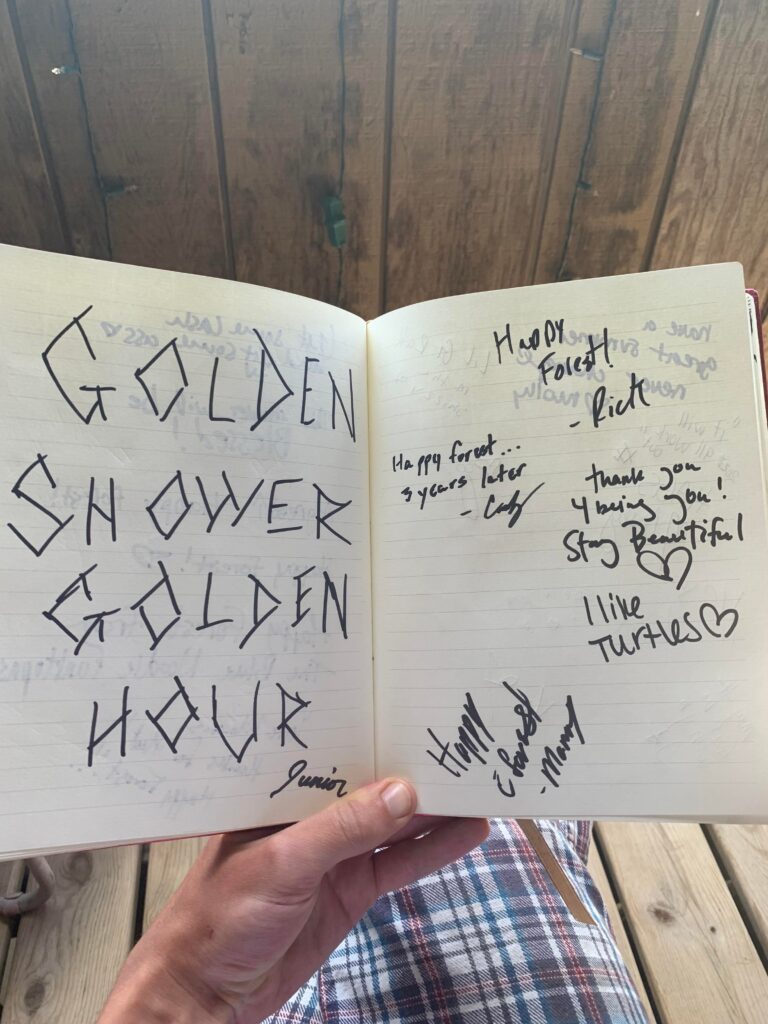 GOLDEN
SHOWER
GOLDEN
HOUR
Junior
Happy
Forest!
- Rich
Happy forest...
3 years later
thank you
4 being you!
Stay Beautiful
I like
TURTLES
Happy
forest